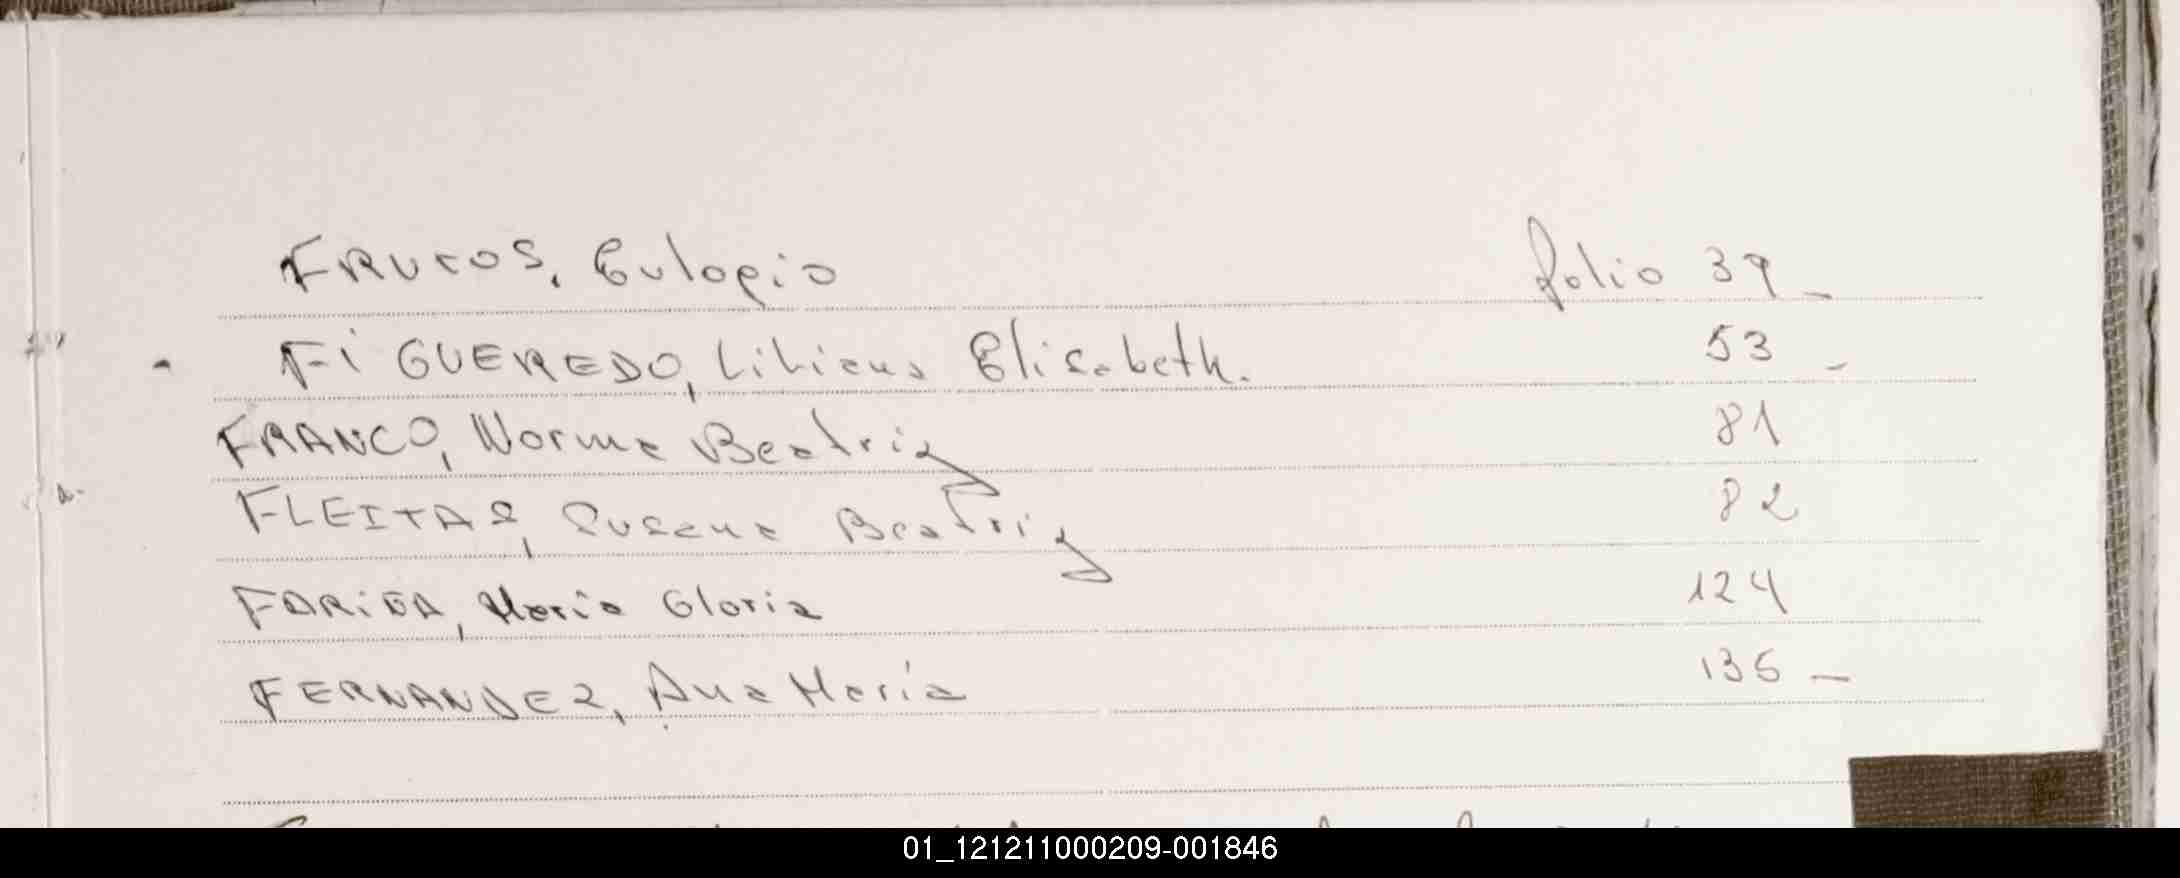 FRUTOS, Eulogio folio 39 _
FIGUEREDO, Liliana Elisabeth. 53 _
FRANCO, Norma Beatriz 81
FLEITAS, Susana Beatriz 82
FARIÑA, María Gloria 124
FERNANDEZ, Ana María 135 _
01_121211000209-001846